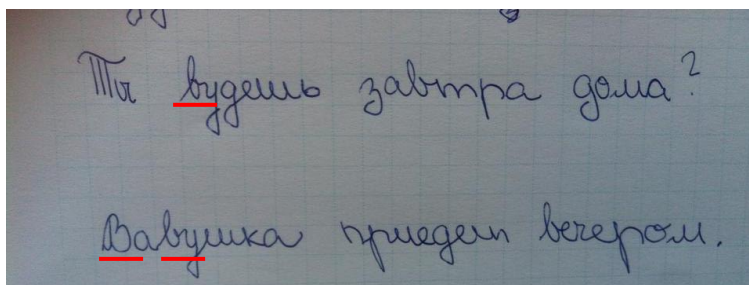 Ты вудешь завтра дома?
Вавушка приедет вечером.